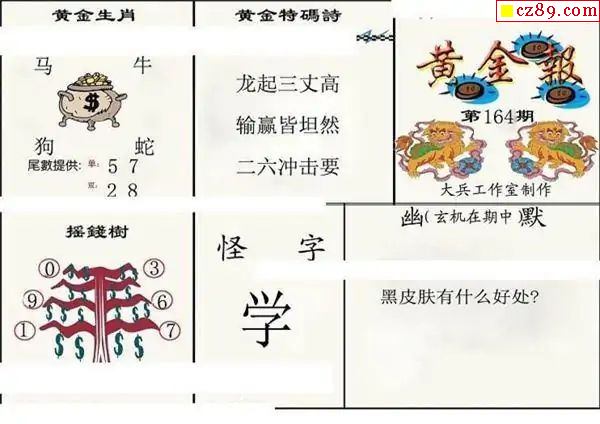 黄金生肖
马 牛
狗 蛇
尾數提供: 单: 5 7
双: 2 8
黄金特碼詩
龙起三丈高
输赢皆坦然
二六冲击要
cz89.com
黄金報
第164期
大兵工作室制作
摇錢樹
0 3
9 6
1 7
怪 字
学
幽(玄机在期中)默
黑皮肤有什么好处?